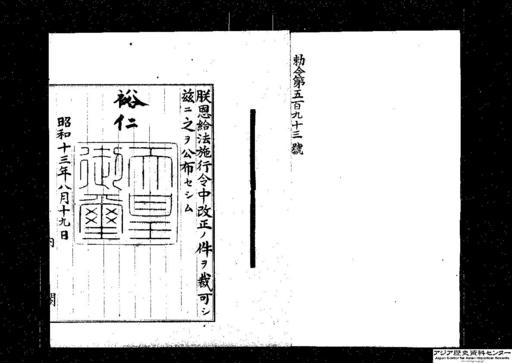 勅令第五百九十三號
朕恩給法施行令中改正ノ件ヲ裁可シ
茲ニ之ヲ公布セシム
裕仁
天皇御璽
昭和十三年八月十九日
内閣
アジア歴史資料センター
Japan Center for Asian Historical Records